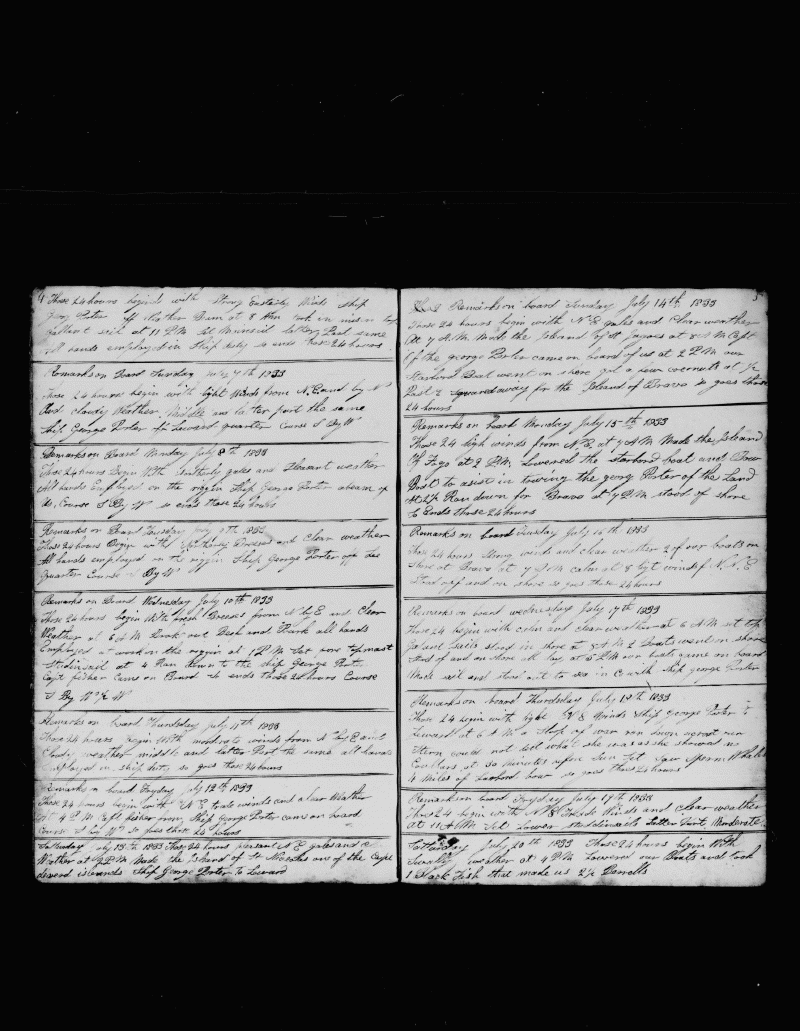 4 These 24 hours begins with Strong Easterly Winds Ship
Geog Porter off Wather Beam at 8 AM
Gallent sail at 11 P.M. Set Mainsail latter Part same
All hands employed in Ship duty so ends these 24 hours
Remarks on Board Sunday July 7th 1833
These 24 hours begin with light Winds from N.E. and by N
And cloudy Weather Middle and later part the same
Ship George Porter Leward quarter Course S By W
Remarks on Board Monday July 8th 1833
These 24 hours Begin With Easterly gales and Pleasant weather
All hands Employed on the riggin Ship George Porter abeam of
Us Course S By W so ends these 24 hours
Remarks on Board Tuesday July 9th 1833
These 24 hours Begin with Breeses and Clear weather
All hands employed on the riggin Ship George Porter off Lee
Quarter Course S By W
Remarks on Board Wednesday July 10th 1833
These 24 hours begin With fresh Breeses from N by E and Clear
Weather at 6 A M Broak out Beef and Pork all hands
Employed at work on the riggin at 1 P.M. Set fore topmast
Studinsail at 4 Ran down to the ship George Porter
Capt fisher Came on Board So ends these 24 hours Course
S By W ½ W
Remarks on board Thursday July 11th 1833
These 24 hours begin With moderate winds from N by E and
Cloudy weather middle and latter Part the same all hands
Employed in ship duty so goes these 24 hours
Remarks on board Fryday July 12th 1833
These 24 hours begin with N E trade winds and clear Weather
At 4 P M Capt fisher from Ship George Porter came on board
Course S by W so goes these 24 hours
Saturday July 13th 1833 These 24 hours pleasant N E gales and
Wather at 2 P.M. Made the Island of St Nicholas one of the Cape
deverd islands Ship George Porter to Leward
5
Remarks on board Sunday July 14th 1833
These 24 hours begin with N E gales and Clear weather
At 7 A.M. Made the Island of St Jagoes at 8 A M Capt
Of the george Porter came on board of us at 2 P.M our
Starbord Boat went on shore got a few coernuts at ½
Past 2 squared away for the Island of Bravo so goes these
24 hours
Remarks on board Monday July 15th 1833
These 24 high winds from N E at 7 A.M. Made the Island
Of Fogo at 2 P.M. Lowered the starbord boat and Bow
Boat to asist in towing the georg Porter of the Land
At ½ Ran down for Brava at 7 P.M stood of shore
So Ends these 24 hours
Remarks on board Tuesday July 16th 1833
These 24 hours Strong winds and clear weather 2 of our boats on
Shore at Brava at 7 P.M calm at 8 lyt winds f N. N. E
Stood off and on shore so goes these 24 hours
Remarks on board wednesday July 17th 1833
These 24 begin with calm and clear weather at 6 A.M set top
Galent Sails stood in shore at 8 A M 2 Boats went on shore
Stood of and on shore all day at 5 P M our boats came on board
Made sail and stood out to sea in Co with ship george Porter
Remarks on board Thursdesday July 18th 1833
These 24 begin with light N E Winds Ship George Porter to
Leward at 6 A M a Sloop of war ran down agrost our
Stern could not tell what she was as she showed us
Coullars at 30 minutes after Sun Set Saw Sperm Whales
4 Miles of Larbord bow so goes these 24 hours
Remarks on board Fryday July 19th 1833
These 24 begin with N E Trade Winds and clear weather
At 11 A.M. Set Lower studdinsails Latter Part Moderate
Saturday July 20th 1833 These 24 hours begin With
Squally weather at 4 P.M Lowered our Boats and took
1 Black Fish that made us 2 ½ Barrells